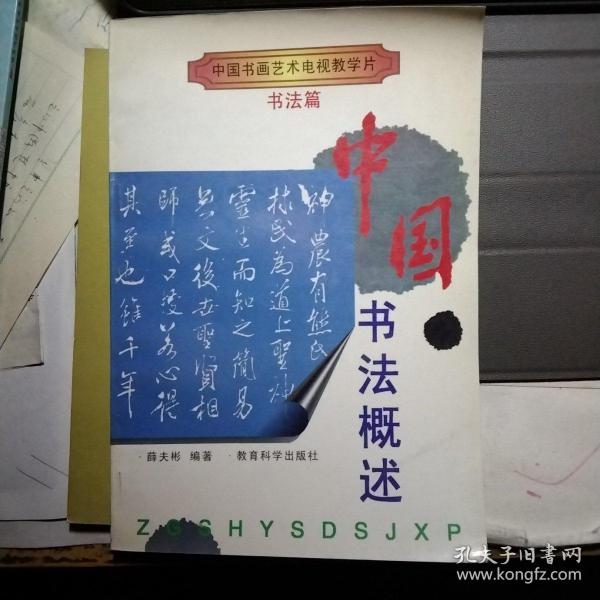 中国书画艺术电视教学片
书法篇
中国
书法概述
神農有熊氏
為道上聖
靈生而知之簡易
文後世聖賢相
師或口受若心得
其至也雖千年
·薛夫彬 编著 ·教育科学出版社
ZGSHYSDSJXP
孔夫子旧书网
www.kongfz.com